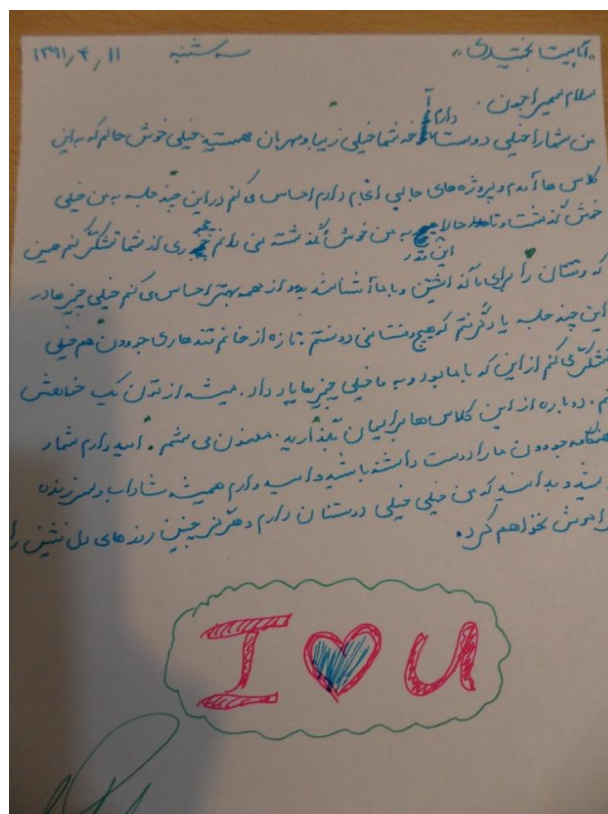 سه شنبه ۱۳۹۱,۴,۱۱
سلام سمیرا جون.
من شما را خیلی دوست دارم آخه شما خیلی زیبا و مهربان هستید. خیلی خوش حالم که به این
کلاس ها آمدم و پروژه های جالبی انجام دادم احساس می کنم در این چند جلسه به من خیلی
خوش گذشت و تا حالا این قدر به من خوش نگذشته نمی دانم چجوری از شما تشکّر کنم همین
که وقتتان را برای ما گذاشتین و با ما آشنا شدید و از همه بهتر احساس می کنم خیلی چیزها در
این چند جلسه یاد گرفتم که هیچ وقت نمی دونستم. تازه از خانم قندهاری جون هم خیلی
تشکّر می کنم از این که با ما بود و به ما خیلی چیزها یاد داد. میشه ازتون یک خواهش
کنم. دوباره از این کلاس ها برایمان بگذارید. ممنون می شم. امیدوارم شما و
جون ما را دوست داشته باشید و امیدوارم همیشه شاداب و سرزنده
باشید و بدانید که من خیلی خیلی دوستان دارم و هرگز چنین روزهای دل نشین را
فراموش نخواهم کرد.
I ♥ U